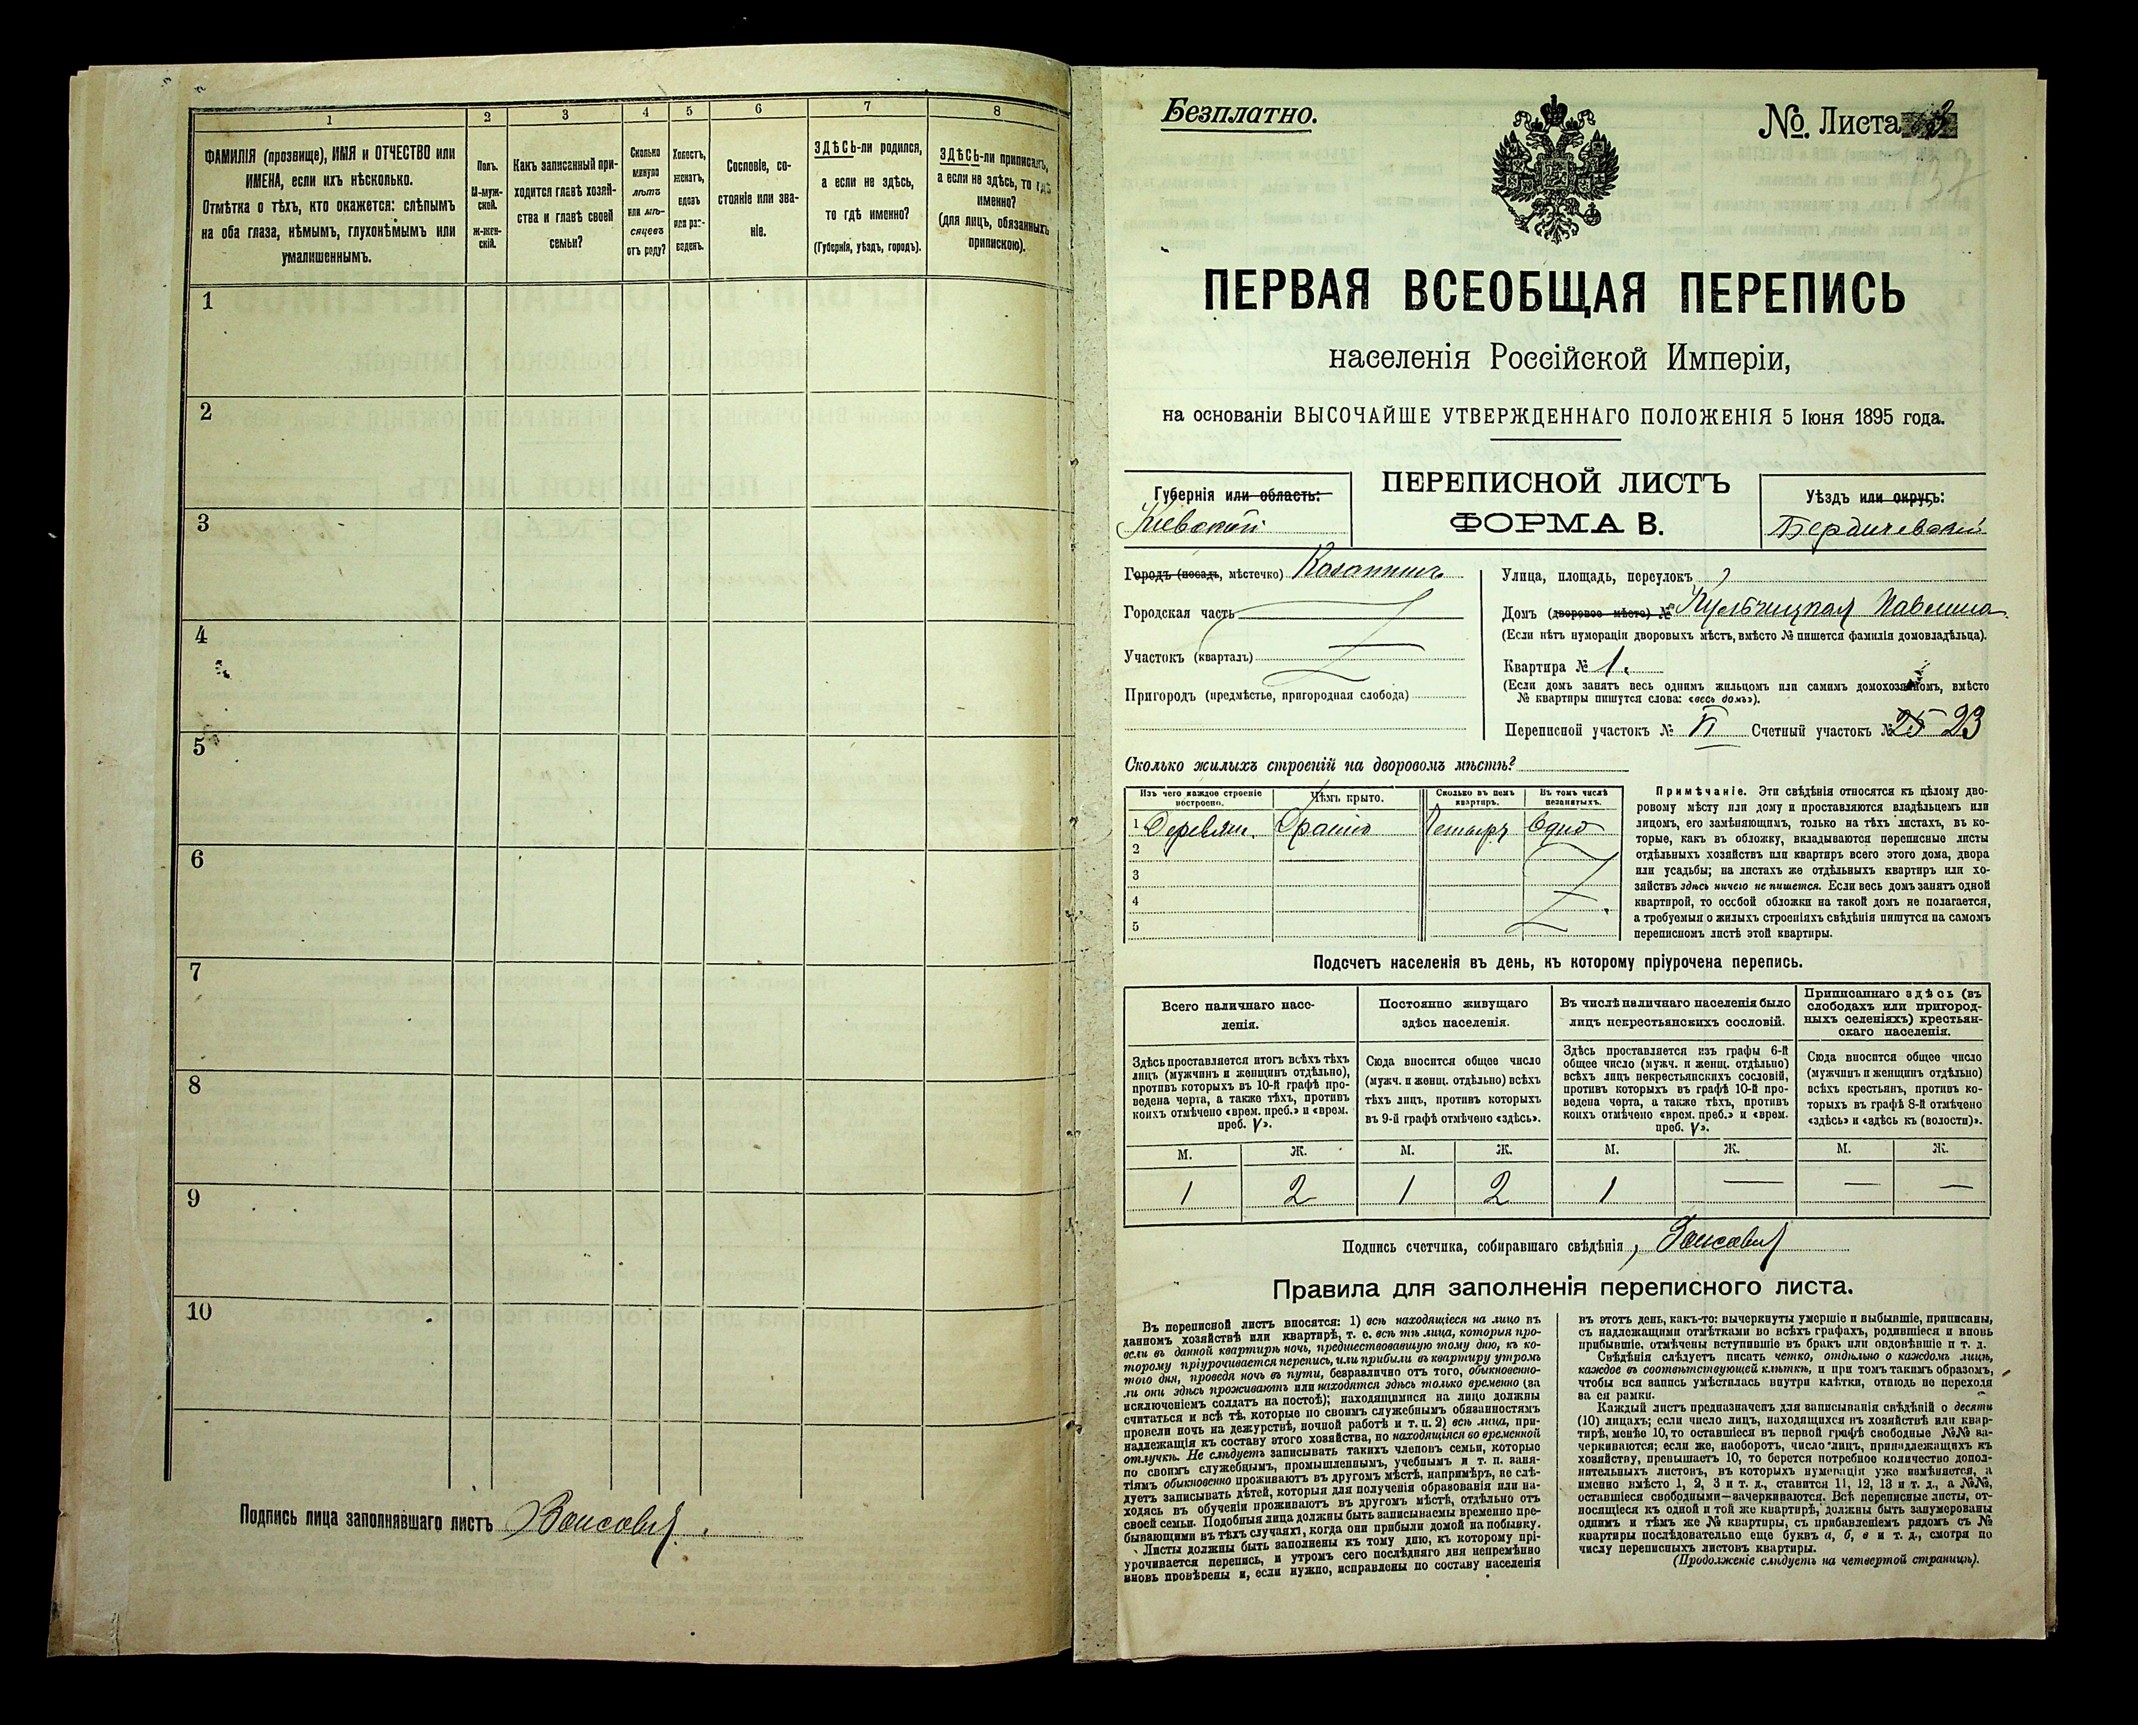 1 2 3 4 5 6 7 8
ФАМИЛІЯ (прозвище), ИМЯ и ОТЧЕСТВО или
ИМЕНА, если ихъ нѣсколько.
Отмѣтка о тѣхъ, кто окажется: слѣпымъ
на оба глаза, нѣмымъ, глухонѣмымъ или
умалишеннымъ.
Полъ.
М-муж-
ской.
Ж-жен-
скій.
Какъ записанный при-
ходится главѣ хозяй-
ства и главѣ своей
семьи?
Сколько
минуло
лѣтъ
или мѣ-
сяцевъ
отъ роду?
Холостъ,
женатъ,
вдовъ
или раз-
веденъ.
Сословіе, со-
стояніе или зва-
ніе.
ЗДѢСЬ-ли родился,
а если не здѣсь,
то гдѣ именно?
(Губернія, уѣздъ, городъ).
ЗДѢСЬ-ли приписанъ,
а если не здѣсь, то гдѣ
именно?
(для лицъ, обязанныхъ
припискою).
1
2
3
4
5
6
7
8
9
10
Подпись лица заполнявшаго листъ
Безплатно.
№. Листа 3
37
ПЕРВАЯ ВСЕОБЩАЯ ПЕРЕПИСЬ
населенія Россійской Имперіи,
на основаніи ВЫСОЧАЙШЕ УТВЕРЖДЕННАГО ПОЛОЖЕНІЯ 5 Іюня 1895 года.
Губернія или область:
Кіевской
ПЕРЕПИСНОЙ ЛИСТЪ
ФОРМА В.
Уѣздъ или округъ:
Бердичевскій
Городъ (посадъ, мѣстечко) Козатинъ
Городская часть
Участокъ (кварталъ)
Пригородъ (предмѣстье, пригородная слобода)
Улица, площадь, переулокъ
Домъ (дворовое мѣсто) № Кульчицкая Павлина
(Если нѣтъ нумораціи дворовыхъ мѣстъ, вмѣсто № пишется фамилія домовладѣльца).
Квартира № 1.
(Если домъ занятъ весь однимъ жильцомъ или самимъ домохозяиномъ, вмѣсто
№ квартиры пишутся слова: «весь домъ»).
Переписной участокъ № II Счетный участокъ № 25 23
Сколько жилыхъ строеній на дворовомъ мѣстѣ?
Изъ чего каждое строеніе
построено.
Чѣмъ крыто.
Сколько въ немъ
квартиръ.
Въ томъ числѣ
незанятыхъ.
1 Деревян. Дранью Четыре Одно
2
3
4
5
Примѣчаніе. Эти свѣдѣнія относятся къ цѣлому дво-
ровому мѣсту или дому и проставляются владѣльцемъ или
лицомъ, его замѣняющимъ, только на тѣхъ листахъ, въ ко-
торые, какъ въ обложку, вкладываются переписные листы
отдѣльныхъ хозяйствъ или квартиръ всего этого дома, двора
или усадьбы; на листахъ же отдѣльныхъ квартиръ или хо-
зяйствъ здѣсь ничего не пишется. Если весь домъ занятъ одной
квартирой, то особой обложки на такой домъ не полагается,
а требуемыя о жилыхъ строеніяхъ свѣдѣнія пишутся на самомъ
переписномъ листѣ этой квартиры.
Подсчетъ населенія въ день, къ которому пріурочена перепись.
Всего наличнаго насе-
ленія.
Здѣсь проставляется итогъ всѣхъ тѣхъ
лицъ (мужчинъ и женщинъ отдѣльно),
противъ которыхъ въ 10-й графѣ про-
ведена черта, а также тѣхъ, противъ
коихъ отмѣчено «врем. преб.» и «врем.
преб. V».
Постоянно живущаго
здѣсь населенія.
Сюда вносится общее число
(мужч. и женщ. отдѣльно) всѣхъ
тѣхъ лицъ, противъ которыхъ
въ 9-й графѣ отмѣчено «здѣсь».
Въ числѣ наличнаго населенія было
лицъ некрестьянскихъ сословій.
Здѣсь проставляется изъ графы 6-й
общее число (мужч. и женщ. отдѣльно)
всѣхъ лицъ некрестьянскихъ сословій,
противъ которыхъ въ графѣ 10-й про-
ведена черта, а также тѣхъ, противъ
коихъ отмѣчено «врем. преб.» и «врем.
преб. V».
Приписаннаго здѣсь (въ
слободахъ или пригород-
ныхъ селеніяхъ) крестьян-
скаго населенія.
Сюда вносится общее число
(мужчинъ и женщинъ отдѣльно)
всѣхъ крестьянъ, противъ ко-
торыхъ въ графѣ 8-й отмѣчено
«здѣсь» и «здѣсь къ (волости)».
М. Ж. М. Ж. М. Ж. М. Ж.
1 2 1 2 1 — — —
Подпись счетчика, собиравшаго свѣдѣнія
Правила для заполненія переписного листа.
Въ переписной листъ вносятся: 1) всѣ находящіеся на лицо въ
данномъ хозяйствѣ или квартирѣ, т. е. всѣ тѣ лица, которыя про-
вели въ данной квартирѣ ночь, предшествовавшую тому дню, къ ко-
торому пріурочивается перепись, или прибыли въ квартиру утромъ
того дня, проведя ночь въ пути, безразлично отъ того, обыкновенно-
ли они здѣсь проживаютъ или находятся здѣсь только временно (за
исключеніемъ солдатъ на постоѣ); находящимися на лицо должны
считаться и всѣ тѣ, которые по своимъ служебнымъ обязанностямъ
провели ночь на дежурствѣ, ночной работѣ и т. п. 2) всѣ лица, при-
надлежащія къ составу этого хозяйства, но находящіяся во временной
отлучкѣ. Не слѣдуетъ записывать такихъ членовъ семьи, которые
по своимъ служебнымъ, промышленнымъ, учебнымъ и т. п. заня-
тіямъ обыкновенно проживаютъ въ другомъ мѣстѣ, напримѣръ, не слѣ-
дуетъ записывать дѣтей, которыя для полученія образованія или на-
ходясь въ обученіи проживаютъ въ другомъ мѣстѣ, отдѣльно отъ
своей семьи. Подобныя лица должны быть записываемы временно пре-
бывающими въ тѣхъ случаяхъ, когда они прибыли домой на побывку.
Листы должны быть заполнены къ тому дню, къ которому прі-
урочивается перепись, и утромъ сего послѣдняго дня непремѣнно
вновь провѣрены и, если нужно, исправлены по составу населенія
въ этотъ день, какъ-то: вычеркнуты умершіе и выбывшіе, приписаны,
съ надлежащими отмѣтками во всѣхъ графахъ, родившіеся и вновь
прибывшіе, отмѣчены вступившіе въ бракъ или овдовѣвшіе и т. д.
Свѣдѣнія слѣдуетъ писать четко, отдѣльно о каждомъ лицѣ,
каждое въ соотвѣтствующей клѣткѣ, и при томъ такимъ образомъ,
чтобы вся запись умѣстилась внутри клѣтки, отнюдь не переходя
за ея рамки.
Каждый листъ предназначенъ для записыванія свѣдѣній о десяти
(10) лицахъ; если число лицъ, находящихся въ хозяйствѣ или квар-
тирѣ, менѣе 10, то оставшіеся въ первой графѣ свободные №№ за-
черкиваются; если же, наоборотъ, число лицъ, принадлежащихъ къ
хозяйству, превышаетъ 10, то берется потребное количество допол-
нительныхъ листовъ, въ которыхъ нумерація уже измѣняется, а
именно вмѣсто 1, 2, 3 и т. д., ставится 11, 12, 13 и т. д., а №№,
оставшіеся свободными—зачеркиваются. Всѣ переписные листы, от-
носящіеся къ одной и той же квартирѣ, должны быть занумерованы
однимъ и тѣмъ же № квартиры, съ прибавленіемъ рядомъ съ №
квартиры послѣдовательно еще буквъ а, б, в и т. д., смотря по
числу переписныхъ листовъ квартиры.
(Продолженіе слѣдуетъ на четвертой страницѣ).